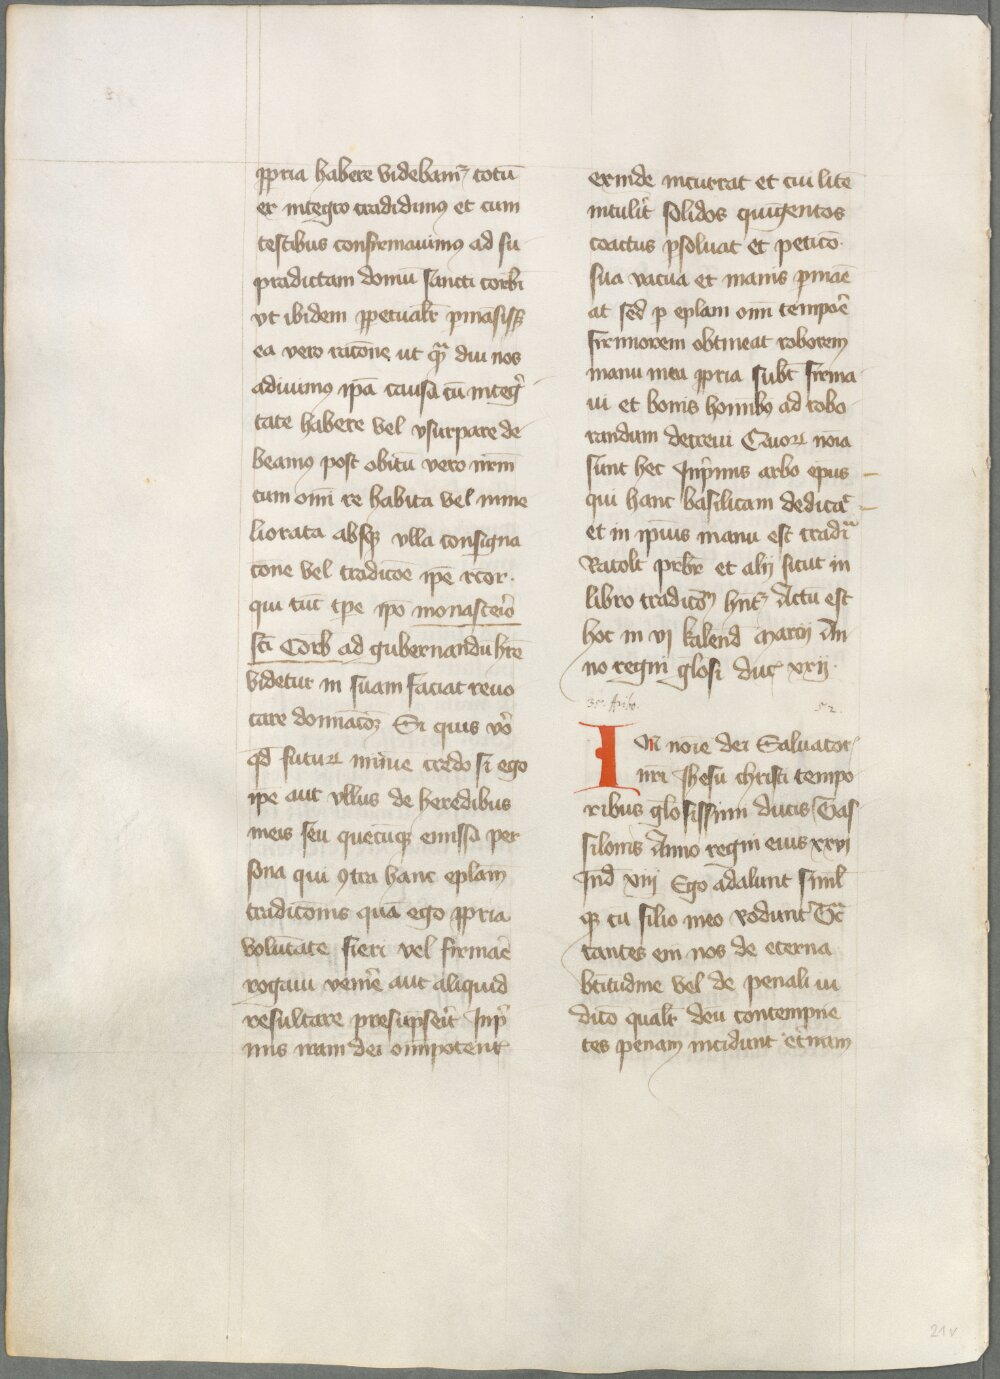 ꝓpria habere videbamr totū
ex integro tradidimꝰ et cum
testibus confirmauimꝰ ad su
pradictam domū sancti corbī
vt ibidem ꝑpetualr̄ ꝑmāsissꝫ
ea vero racōne ut qͣ diu nos
adiuimꝰ ip̄a causa cū integͥ
tate habere vel vsurpare de
beamꝰ post obitū vero nr̄m
cum om̄i re habita vel inme
liorata absqꝫ vlla consigna
cone vel tradicōe ip̄e rcōr
qui tūc tp̄e ip̄o monasterio
sc̄i Corb ad gubernandū hr̄e
videtur in suam faciat reuo
care donnacōꝫ Si quis vo
qd̄ futuꝝ mīme credo si ego
ip̄e aut vllus de heredibus
meis seu quecūqꝫ emissa per
sona qui ꝯtra hanc eplām
tradicōnis quā ego ꝓpria
volūtate fieri vel firmare
rogaui venire aut aliquid
resultare presūpserit Inpͥ
mis iram dei om̄ipotent
exinde incurrat et cui lite
intulit solidos quīgentos
coactus ꝑsoluat et peticō
sua vacua et manis ꝑmāe
at sed ꝑ eplam om̄i tempore
firmiorem obtineat roborem
manu mea ꝓpria subt̄ firma
ui et bonis homībꝰ ad robo
randum decreui Quoꝝ noīa
sunt hec Inpͥmis arbo ep̄us
qui hanc basilicam dedicat
et in ip̄ius manu est tradita
Ratolt prb̄r et alij sicut in
libro tradicōm hn̄t Actū est
hoc in vj kalend̄ marcij An
no regni glosi duc xxij
In noīe dei Saluator
nr̄i Jhesu christi tempo
ribus glosissimi ducis Tas
silonis Anno regni eius xxvj
Ind̄ xiij Ego adalunt siml̄
qꝫ cū filio meo rodunt Tc
tantes em nos de eterna
bt̄itudine vel de penali iu
dico qualr̄ deū contempne
tes penam incidunt et̄nam
21v